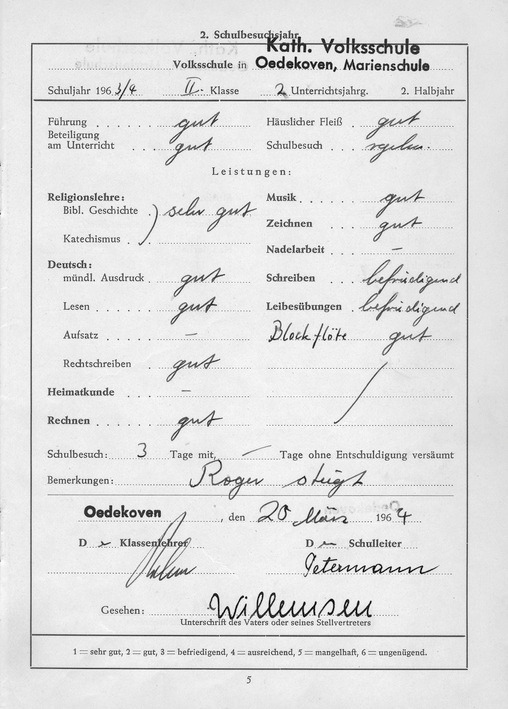 2. Schulbesuchsjahr
Kath. Volksschule
Volksschule in Oedekoven, Marienschule
Schuljahr 1963/4 II. Klasse 2 Unterrichtsjahrg. 2. Halbjahr
Führung gut Häuslicher Fleiß gut
Beteiligung
am Unterricht gut Schulbesuch rgelm.
Leistungen:
Religionslehre: Musik gut
Bibl. Geschichte ) sehr gut
Zeichnen gut
Katechismus
Nadelarbeit –
Deutsch:
mündl. Ausdruck gut Schreiben befriedigend
Lesen gut Leibesübungen befriedigend
Aufsatz – Blockflöte gut
Rechtschreiben gut
Heimatkunde –
Rechnen gut
Schulbesuch: 3 Tage mit, – Tage ohne Entschuldigung versäumt
Bemerkungen: Roger steigt
Oedekoven, den 20 März 1964
D er Klassenlehrer D er Schulleiter
Petermann
Gesehen: Willemsen
Unterschrift des Vaters oder seines Stellvertreters
1 = sehr gut, 2 = gut, 3 = befriedigend, 4 = ausreichend, 5 = mangelhaft, 6 = ungenügend.
5